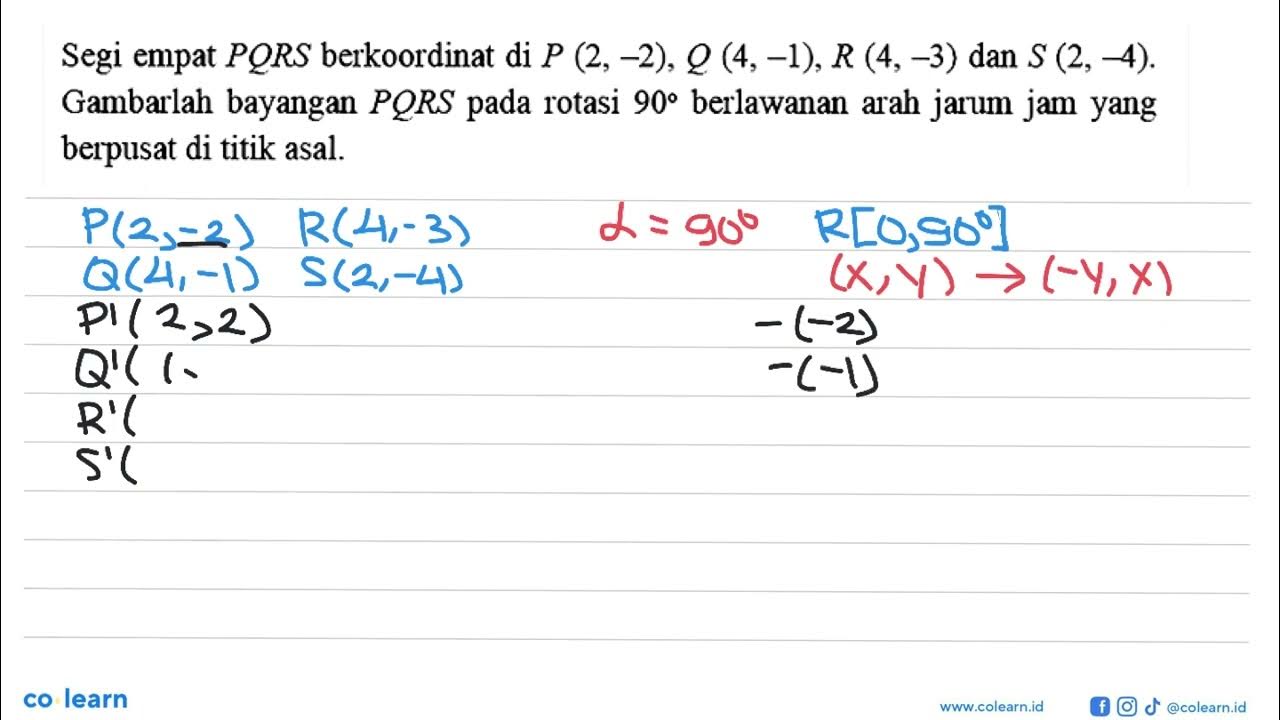 Segi empat PQRS berkoordinat di P (2, –2), Q (4, –1), R (4, –3) dan S (2, –4).
Gambarlah bayangan PQRS pada rotasi 90° berlawanan arah jarum jam yang
berpusat di titik asal.
P(2,-2) R(4,-3) α = 90° R[0,90°]
Q(4,-1) S(2,-4) (x,y) → (-y,x)
P'(2,2) -(-2)
Q'(1, -(-1)
R'(
S'(
co learn www.colearn.id @colearn.id